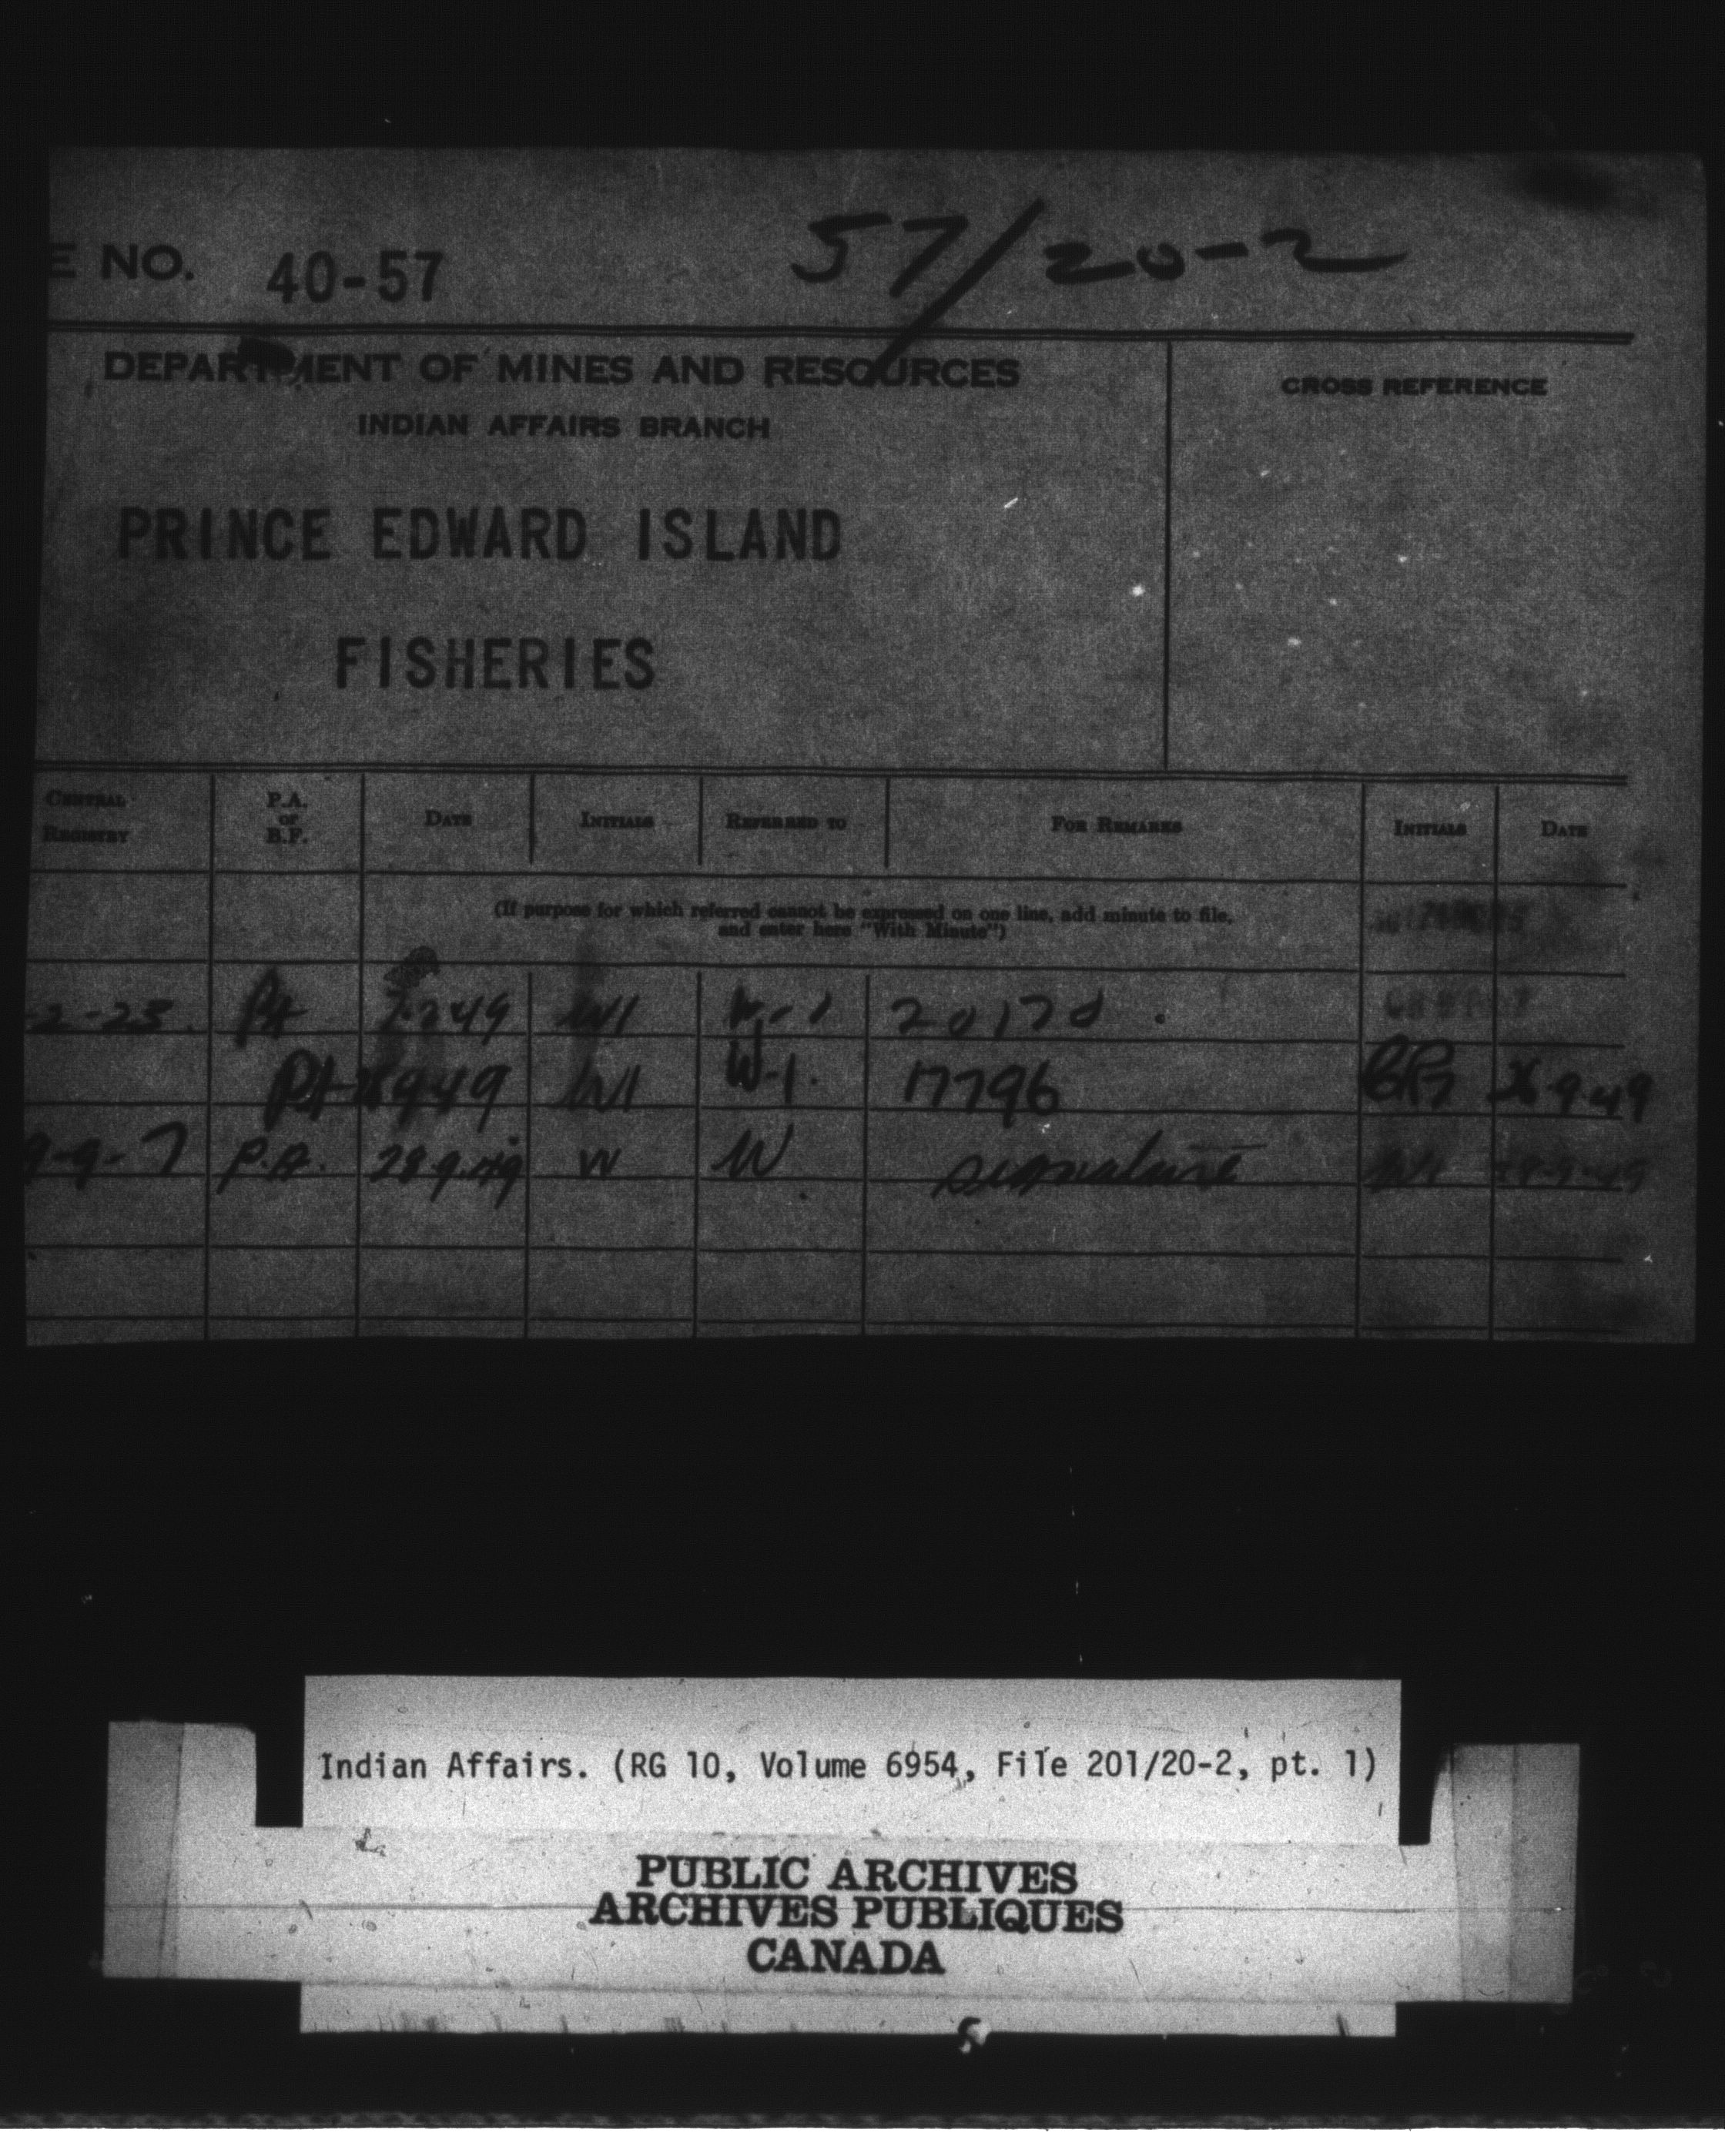 E NO. 40-57 57/20-2
DEPARTMENT OF MINES AND RESOURCES
CROSS REFERENCE
INDIAN AFFAIRS BRANCH
PRINCE EDWARD ISLAND
FISHERIES
CENTRAL REGISTRY P.A. OR B.F. DATE INITIALS REFERRED TO FOR REMARKS INITIALS DATE
(If purpose for which referred cannot be expressed on one line, add minute to file,
and enter here "With Minute")
2-23. W1
W1 W-1. 17796 26-9-49
9-9-7 P.A. 28.9.49 W W signature
Indian Affairs. (RG 10, Volume 6954, File 201/20-2, pt. 1)
PUBLIC ARCHIVES
ARCHIVES PUBLIQUES
CANADA